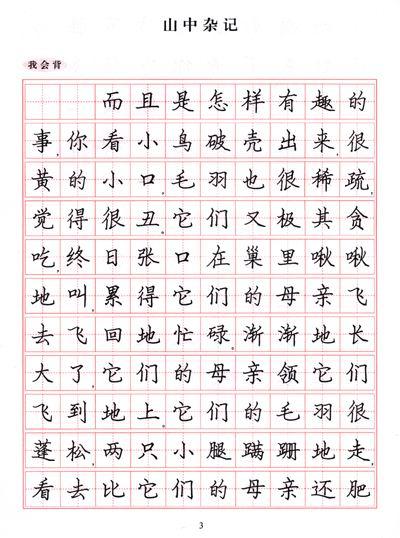 山中杂记
我会背
而且是怎样有趣的
事,你看小鸟破壳出来,很
黄的小口,毛羽也很稀疏,
觉得很丑。它们又极其贪
吃,终日张口在巢里啾啾
地叫,累得它们的母亲飞
去飞回地忙碌。渐渐地长
大了,它们的母亲领它们
飞到地上。它们的毛羽很
蓬松,两只小腿蹒跚地走,
看去比它们的母亲还肥
3